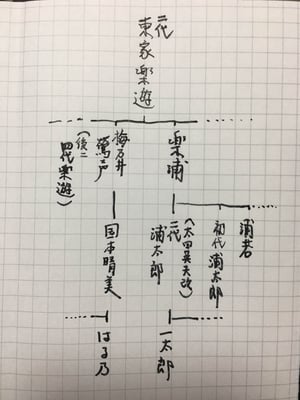 二代
東家楽遊
浦若
初代 浦太郎
楽浦
(太田英夫改)
二代 浦太郎
一太郎
梅乃井
(後ニ
四代楽遊)
国本晴美
はる乃